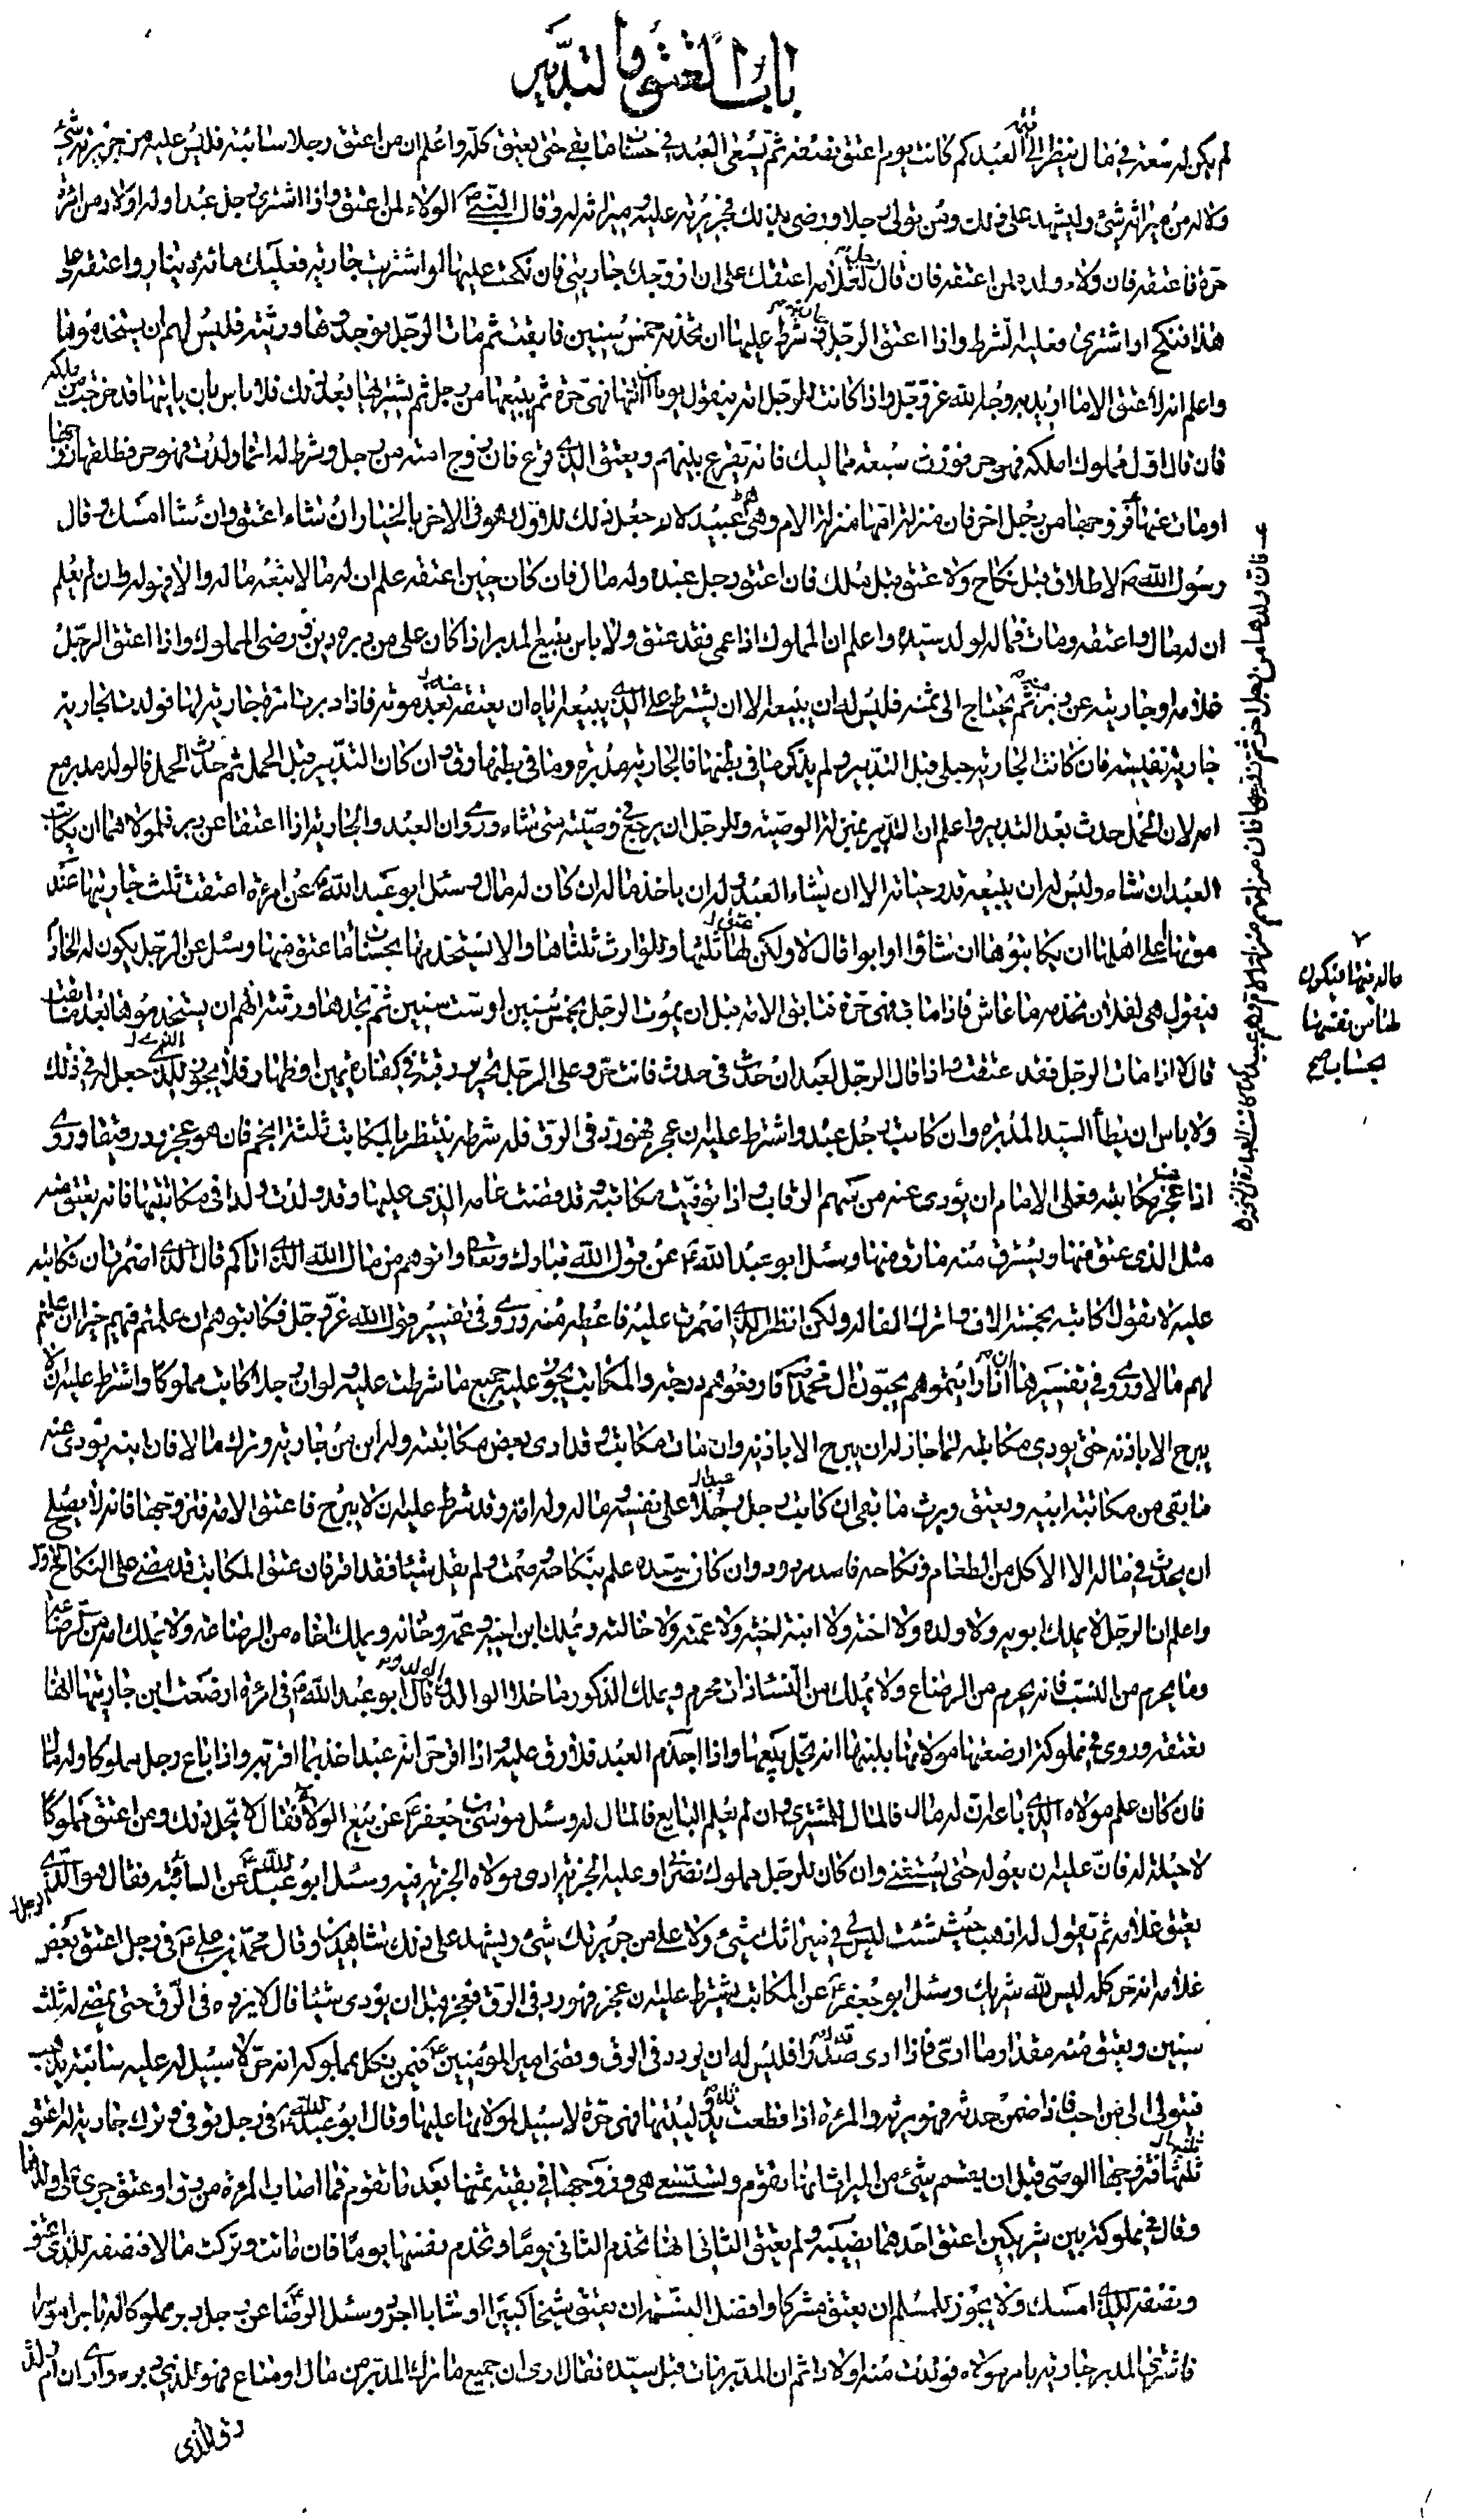 باب العتق والتدبير
لم يكن له سعة في مال نظر الى قيمة العبد كم كانت يوم اعتق نصفه ثم يسعى العبد في حساب ما بقي حتى يعتق كله واعلم ان من اعتق رجلا سائبة فليس عليه من جريرته شئ
ولا له من ميراثه شئ وليشهد على ذلك ومن تولى رجلا ورضى بذلك فجريرته عليه وميراثه له وقال النبي ص الولاء لمن اعتق واذا اشترى رجل عبدا وله اولاد من امرأة
حرة فاعتقه فان ولاء ولده لمن اعتقه فان قال رجل لغلامه اعتقك على ان ازوجك جاريتي فان نكحت عليها او اشتريت جارية فعليك مائة دينار واعتقه على
هذا فنكح او اشترى فعليه الشرط واذا اعتق الرجل جاريته وشرط عليها ان تخدمه خمس سنين فابقت ثم مات الرجل فوجدها ورثته فليس لهم ان يستخدموها
واعلم انه لا عتق الا ما اريد به وجه الله عز وجل واذا كانت للرجل امة فيقول يوما آتيها فهي حرة ثم يبيعها من رجل ثم يشتريها بعد ذلك فلا باس بان ياتيها قد خرجت من ملكه
فان قال اول مملوك املكه فهو حر فورث سبعة مماليك فانه يقرع بينهم ويعتق الذي قرع فان زوج امته من رجل وشرط له انما ولدت فهو حر فطلقها زوجها
او مات عنها فزوجها من رجل اخر فان منزلتهم منزلة الام وهم عبيد لانه جعل ذلك للاول وهو في الاخر بالخيار ان شاء اعتق وان شاء امسك وقال
رسول الله ص لا طلاق قبل نكاح ولا عتق قبل ملك فان اعتق رجل عبده وله مال فان كان حين اعتقه علم ان له مالا تبعه ماله والا فهو له وان لم يعلم
ان له مال واعتقه ومات فماله لولد سيده واعلم ان المملوك اذا عمي فقد عتق ولا باس ببيع المدبر اذا كان على من دبره دين ورضى المملوك واذا اعتق الرجل
غلامه او جاريته عن دبر منه ثم يحتاج الى ثمنه فليس له ان يبيعه الا ان يشترط على الذي يبيعه اياه ان يعتقه عند موته فاذا دبرت امرأة جارية لها فولدت الجارية
جارية نفيسة فان كانت الجارية حبلى قبل التدبير ولم يذكر ما في بطنها فالجارية مدبرة وما في بطنها رق وان كان التدبير قبل الحمل ثم حدث الحمل فالولد مدبر مع
امه لان الحمل حدث بعد التدبير واعلم ان التدبير بمنزلة الوصية وللرجل ان يرجع في وصيته متى شاء وروى ان العبد والجارية اذا اعتقا عن دبر فلمولاهما ان يكاتب
العبد ان شاء وليس له ان يبيعه قدر حياته الا ان يشاء العبد وله ان ياخذ ماله ان كان له مال وسئل ابو عبد الله ع عن امرءة اعتقت ثلث جاريتها عند
موتها اعلى اهلها ان يكاتبوها ان شاؤا او ابوا قال لا ولكن لها ثلثها وللوارث ثلثاها والا يستخدمها بحساب ما عتق منها وسئل عن الرجل يكون له الخادم
فيقول هي لفلان تخدمه ما عاش فاذا مات فهي حرة فتابق الامة قبل ان يموت الرجل بخمس سنين او ست سنين ثم تجدها ورثته الهم ان يستخدموها بعد ما ابقت
قال لا اذا مات الرجل فقد عتقت واذا قال الرجل لعبده ان حدث في حدث فانت حر وعلى الرجل تحرير رقبة في كفارة يمين او ظهار فلا يجزي الذي جعل له في ذلك
ولا باس ان يطأ السيد المدبرة وان كاتب رجل عبده واشترط عليه ان عجز فهو رد في الرق فله شرطه ينتظر بالمكاتب ثلثة انجم فان هو عجز رد رقيقا وروى
اذا عجز مكاتبه فعلى الامام ان يؤدى عنه من سهم الرقاب واذا توفيت مكاتبة قد قضت عامة الذي عليها وقد ولدت ولدا في مكاتبتها فانه يعتق منه
مثل الذي عتق منها ويسترق منه ما رق منها وسئل ابو عبد الله ع عن قول الله تبارك وتعالى وآتوهم من مال الله الذي آتاكم قال الذي اضمرت ان تكاتبه
عليه لا تقول اكاتبه بخمسة الاف واترك الفا له ولكن انظر الذي اضمرت عليه فاعطه منه وروى في تفسير قول الله عز وجل فكاتبوهم ان علمتم فيهم خيرا ان علمتم
لهم مالا وروى في تفسيرها اذا رايتموهم يحبون ال محمد ص فارفعوهم درجة والمكاتب يجوز عليه جميع ما شرطت عليه لو ان رجلا كاتب مملوكا واشترط عليه ان لا
يبرح الا باذنه حتى يودي مكاتبته لما جاز له ان يبرح الا باذنه وان مات مكاتب وقد ادى بعض مكاتبته وله ابن من جارية وترك مالا فان ابنه يودي عنه
ما بقي من مكاتبة ابيه ويعتق ويرث ما بقي وان كاتب رجل عبدا على نفسه وماله وله امة وقد شرط عليه ان لا يبرح فاعتق الامة فتزوجها فانه لا يصلح
ان يحدث في ماله الا الاكل من الطعام ونكاحه فاسد مردود وان كان سيده علم بنكاحه وصمت ولم يقل شيئا فقد اقر فان عتق المكاتب قد مضى على النكاح الاول
واعلم ان الرجل لا يملك ابويه ولا ولده ولا اخته ولا ابنة اخته ولا عمته ولا خالته ويملك ابن اخيه وعمه وخاله ويملك اخاه من الرضاعة ولا يملك امه من الرضاعة
وما يحرم من النسب فانه يحرم من الرضاع ولا يملك من النساء ذات محرم ويملك الذكور ما خلا الوالد والولد وقال ابو عبد الله ع في امرءة ارضعت ابن جاريتها انها
تعتقه وروى في مملوكة ارضعتها مولاتها بلبنها انه تحل بيعها واذا اجذم العبد فلا رق عليه اذا اقر حر انه عبد اخذ بما اقر به واذا باع رجل مملوكا وله مال
فان كان علم مولاه الذي باعه ان له مال فالمال للمشتري وان لم يعلم البايع فالمال له وسئل موسى بن جعفر ع عن بيع الولاء فقال لا تحل ذلك ومن اعتق مملوكا
لا حيلة له فان عليه ان يعوله حتى يستغني وان كان للرجل مملوك نصراني وعليه الجزية ادى مولاه الجزية فيه وسئل ابو عبد الله ع عن السائبة فقال هو الرجل الذي
يعتق غلامه ثم يقول له اذهب حيث شئت ليس لي في ميراثك شئ ولا علي من جريرتك شئ ويشهد على ذلك شاهدين وقال محمد بن علي ع في رجل اعتق بعض
غلامه انه حر كله ليس لله شريك وسئل ابو جعفر ع عن المكاتب يشترط عليه ان عجز فهو رد في الرق فعجز قبل ان يؤدى شيئا قال لا يرده في الرق حتى يمضي له ثلث
سنين ويعتق منه مقدار ما ادى فاذا ادى صدرا فليس له ان يرده في الرق وقضى امير المؤمنين ع فيمن نكل بمملوكه انه حر لا سبيل له عليه سائبة يذهب
فيتولى الى من احب فاذا ضمن حدثه فهو يرثه والمرءة اذا قطعت ثدي وليدتها فهي حرة لا سبيل لمولاتها عليها وقال ابو عبد الله ع في رجل توفى وترك جارية له اعتق
ثلثها فتزوجها الوصي قبل ان يقسم شئ من الميراث انها تقوم وتستسعى هي وزوجها في بقية ثمنها بعد ما تقوم فما اصاب المرءة من رق او عتق جرى على ولدها
وقال في مملوكة بين شريكين اعتق احدهما نصيبه ولم يعتق الثاني انها تخدم الثاني يوما وتخدم نفسها يوما فان ماتت وتركت مالا فنصفه للذي اعتق
ونصفه للذي امسك ولا يجوز للمسلم ان يعتق مشركا وافضل النسمة ان يعتق شيخا كبيرا او شابا اجرد وسئل الرضا ع عن رجل دبر مملوكا له تاجرا موسرا
فاشترى المدبر جارية بامر مولاه فولدت منه اولادا ثم ان المدبر مات قبل سيده فقال ارى ان جميع ما ترك المدبر من مال او متاع فهو للذي دبره وارى ان ام ولده
رق للذي
ما له فيها فيكون
لها من نفسها
بحساب صح